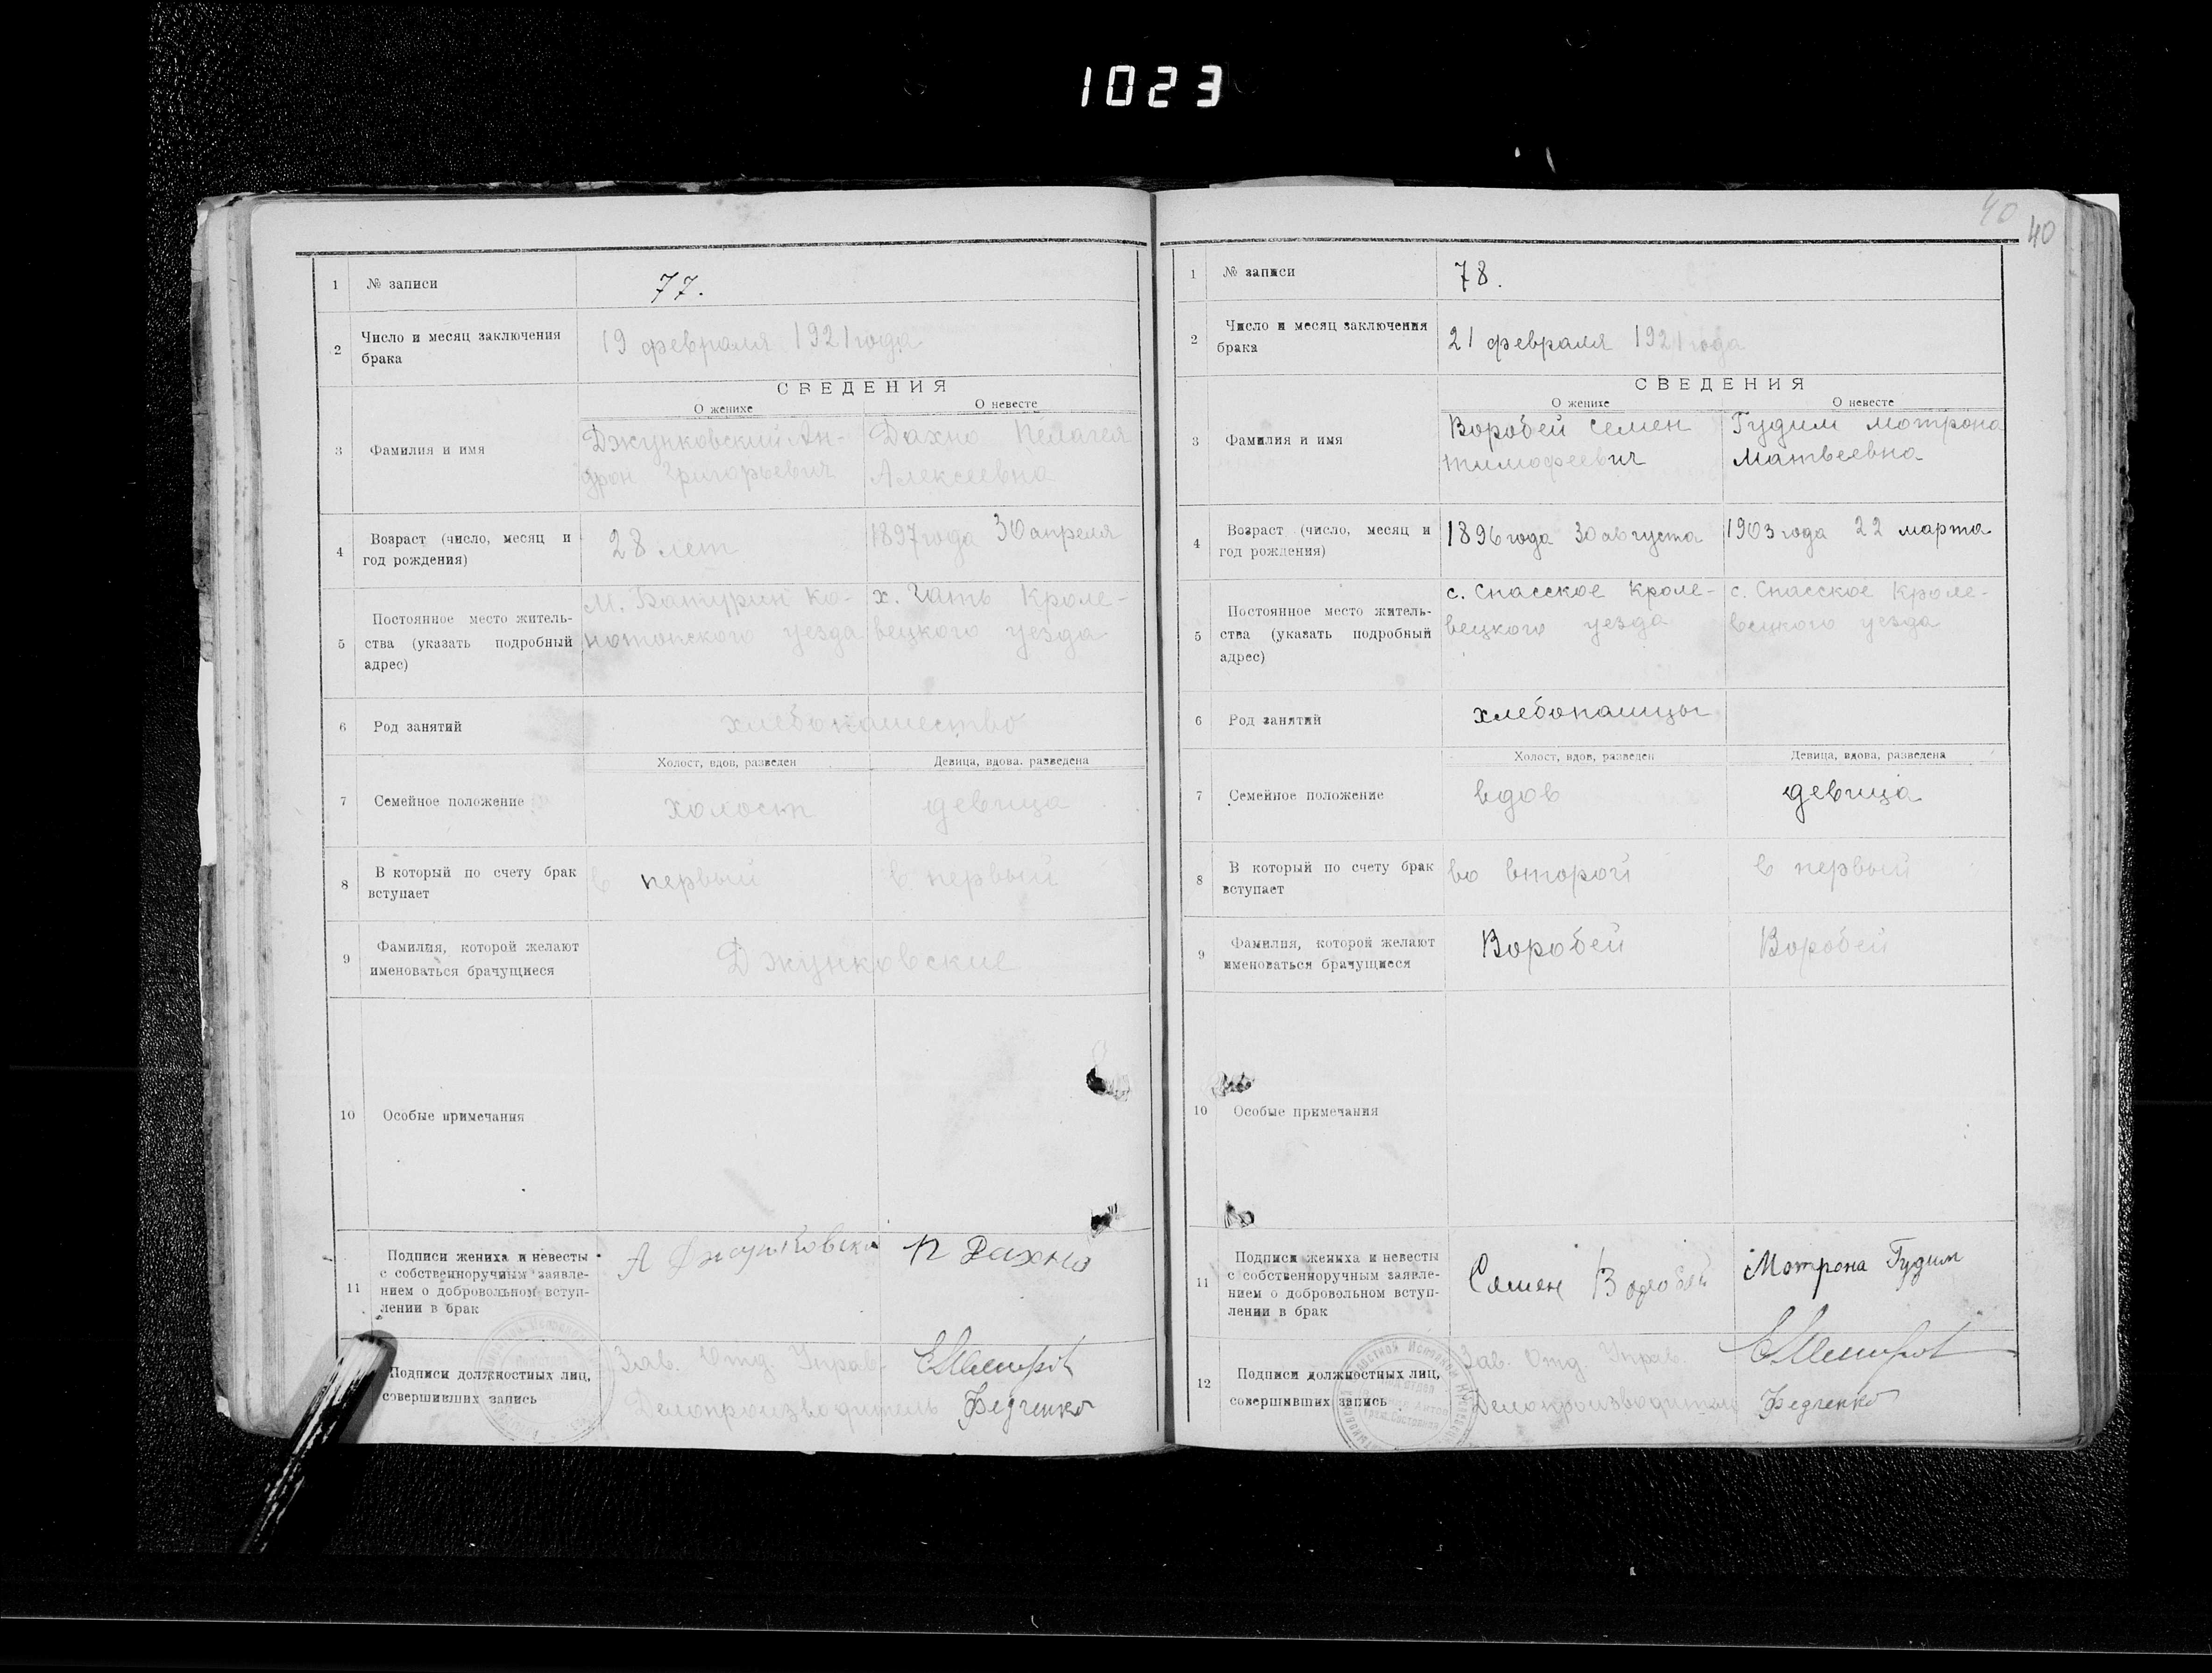 1023
40
40
1 № записи 77.
2 Число и месяц заключения
брака 19 февраля 1921 года
СВЕДЕНИЯ
О женихе О невесте
3 Фамилия и имя Джунковский Ан- Дахно Пелагея
дрон Григорьевич Алексеевна
4 Возраст (число, месяц и
год рождения) 28 лет 1897 года 30 апреля
5 Постоянное место житель-
ства (указать подробный
адрес)
М. Батурин Ко- х. Гать Кроле-
нотопского уезда вецкого уезда
6 Род занятий хлебопашество
Холост, вдов, разведен Девица, вдова, разведена
7 Семейное положение холост девица
8 В который по счету брак
вступает в первый в первый
9 Фамилия, которой желают
именоваться брачущиеся Джунковские
10 Особые примечания
11 Подписи жениха и невесты
с собственноручным заявле-
нием о добровольном вступ-
лении в брак
А Джунковски П Дахно
Подписи должностных лиц,
совершивших запись
Зав. Отд. Управ.
Делопроизводитель Федченко
1 № записи 78.
2 Число и месяц заключения
брака 21 февраля 1921 года
СВЕДЕНИЯ
О женихе О невесте
3 Фамилия и имя Воробей Семен Гудим Мотрона
Тимофеевич Матвеевна
4 Возраст (число, месяц и
год рождения) 1896 года 30 августа 1903 года 22 марта
5 Постоянное место житель-
ства (указать подробный
адрес)
с. Спасское Кроле- с. Спасское Кроле-
вецкого уезда вецкого уезда
6 Род занятий хлебопашцы
Холост, вдов, разведен Девица, вдова, разведена
7 Семейное положение вдов девица
8 В который по счету брак
вступает во второй в первый
9 Фамилия, которой желают
именоваться брачущиеся Воробей Воробей
10 Особые примечания
11 Подписи жениха и невесты
с собственноручным заявле-
нием о добровольном вступ-
лении в брак
Семен Воробей Мотрона Гудим
12 Подписи должностных лиц,
совершивших запись
Зав. Отд. Управ.
Делопроизводитель Федченко